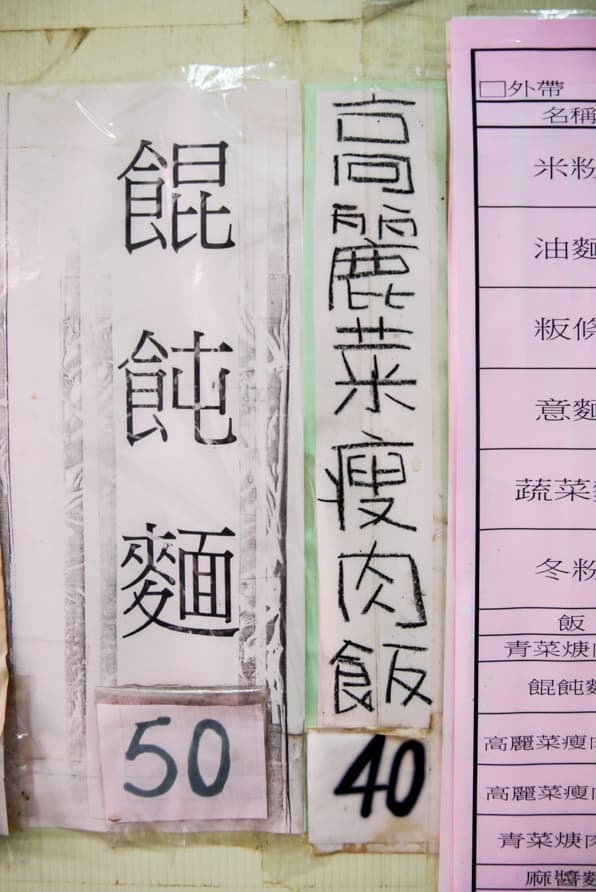 餛飩麵
50
高麗菜瘦肉飯
40
□外帶
名稱
米粉
油麵
粄條
意麵
蔬菜
冬粉
飯
青菜焿
餛飩麵
高麗菜瘦
高麗菜瘦
青菜焿肉
麻醬麵